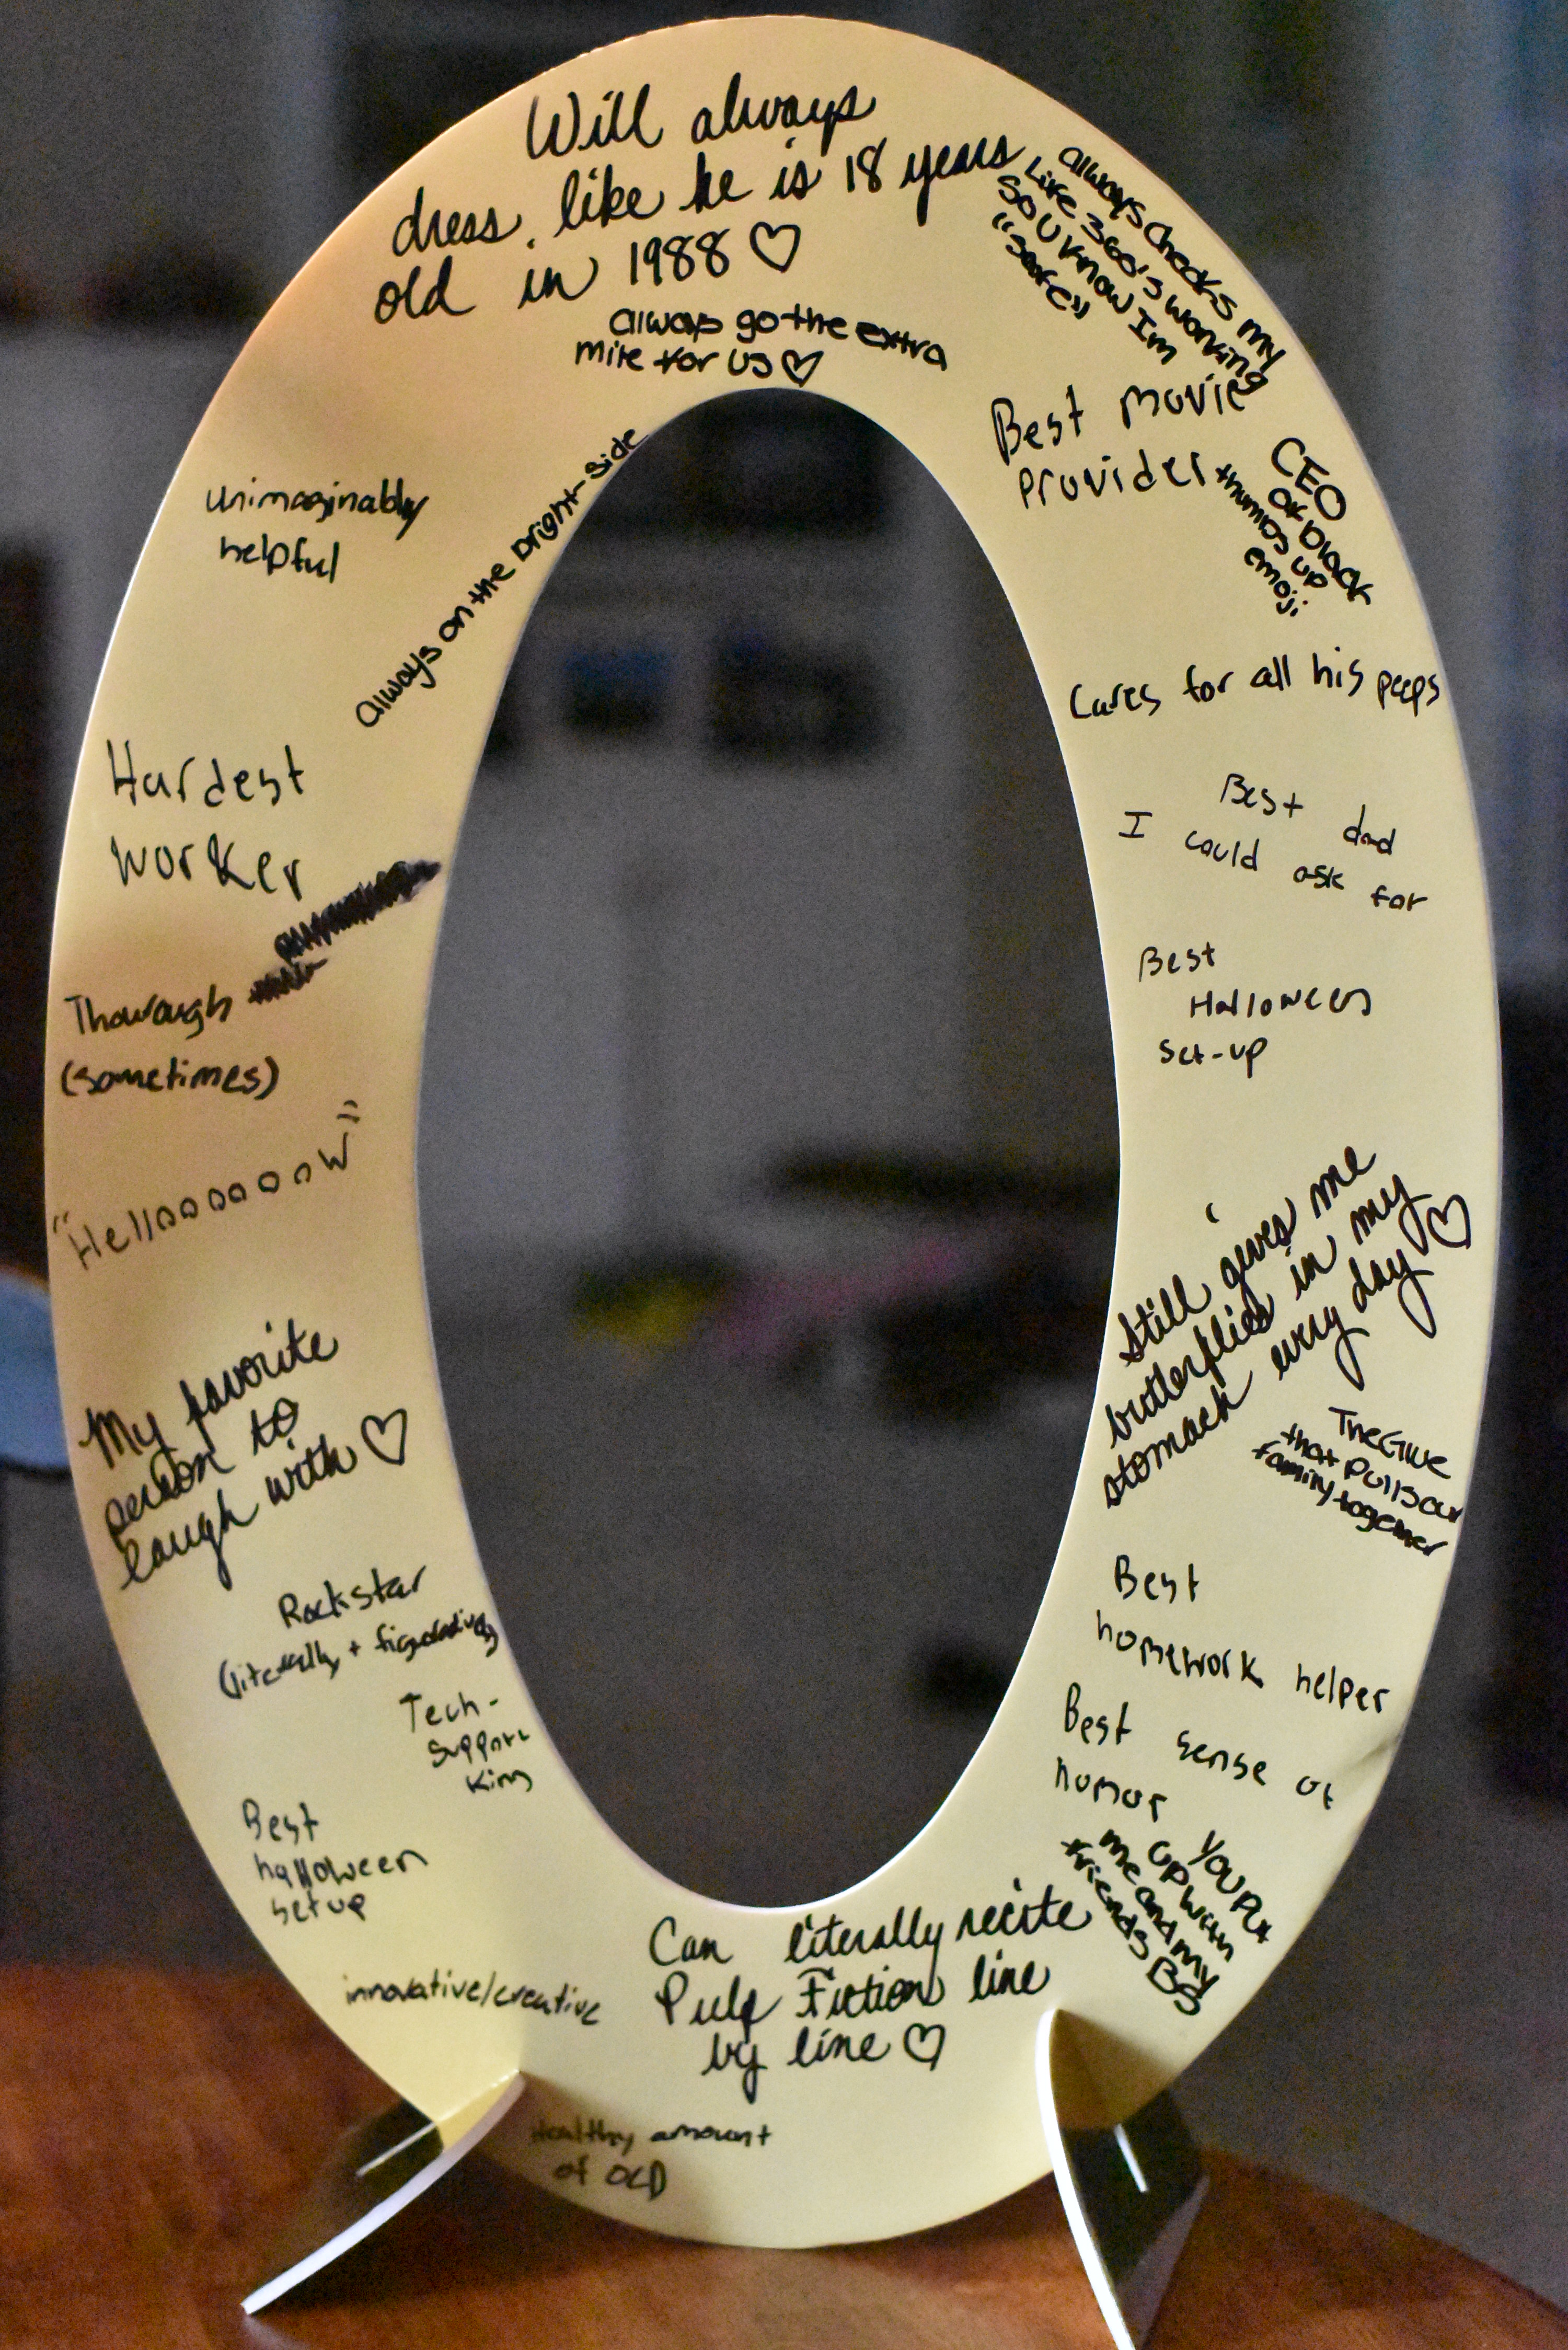 Will always
dress like he is 18 years
old in 1988 ♡
always go the extra
mile for us ♡
always checks my
Life 360's working
so U know Im
"safe"
Best movie
provider
CEO
of black
thumbs up
emoji
Cares for all his peeps
Best dad
I could ask for
Best
Halloween
set-up
Still gives me
butterflies in my
stomach every day ♡
The Glue
that pulls our
family together
Best
homework helper
Best sense of
humor
You Put
up with
me and my
friends BS
Always on the bright-side
unimaginably
helpful
Hardest
worker
Thourough
(sometimes)
"Helloooooow"
My favorite
person to
laugh with ♡
Rockstar
(literally + figuratively)
Tech-
support
King
Best
halloween
setup
innovative/creative
Can literally recite
Pulp Fiction line
by line ♡
Healthy amount
of OCD